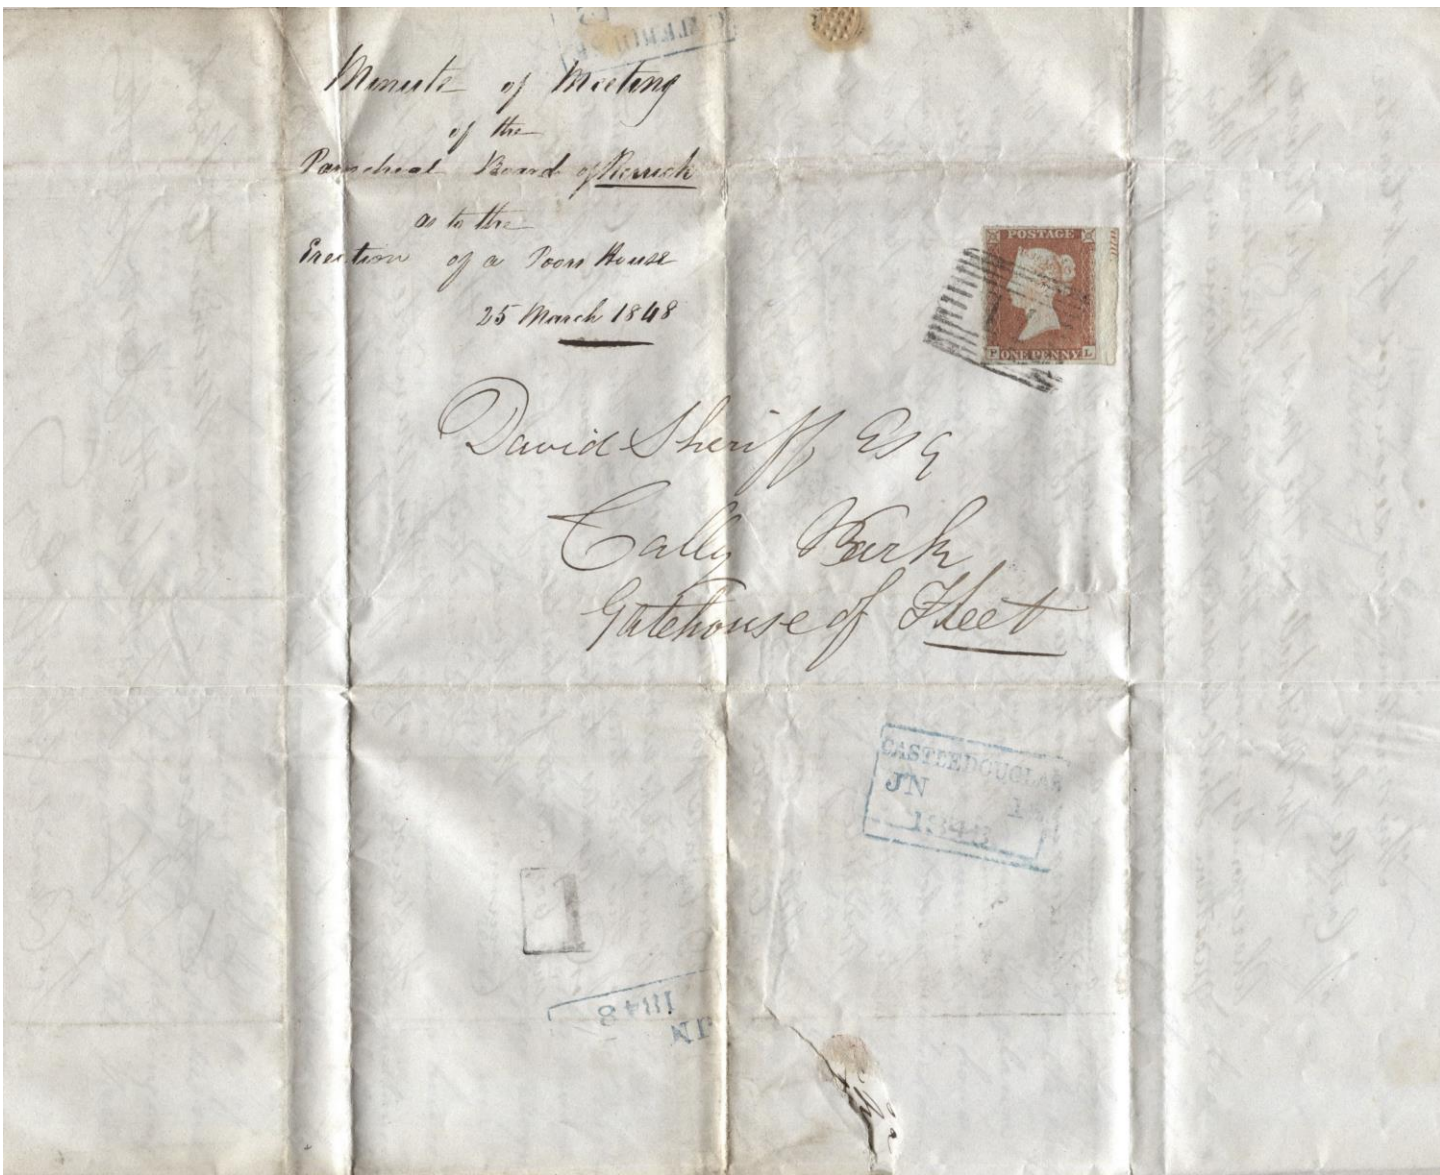 Minute of Meeting
of the
Parochial Board of Rerrick
as to the
Erection of a Poor House
25 March 1848
POSTAGE
P ONE PENNY L
David Sheriff Esq
Cally Park
Gatehouse of Fleet
CASTLE DOUGLAS
JN
1848
1
1848
JN